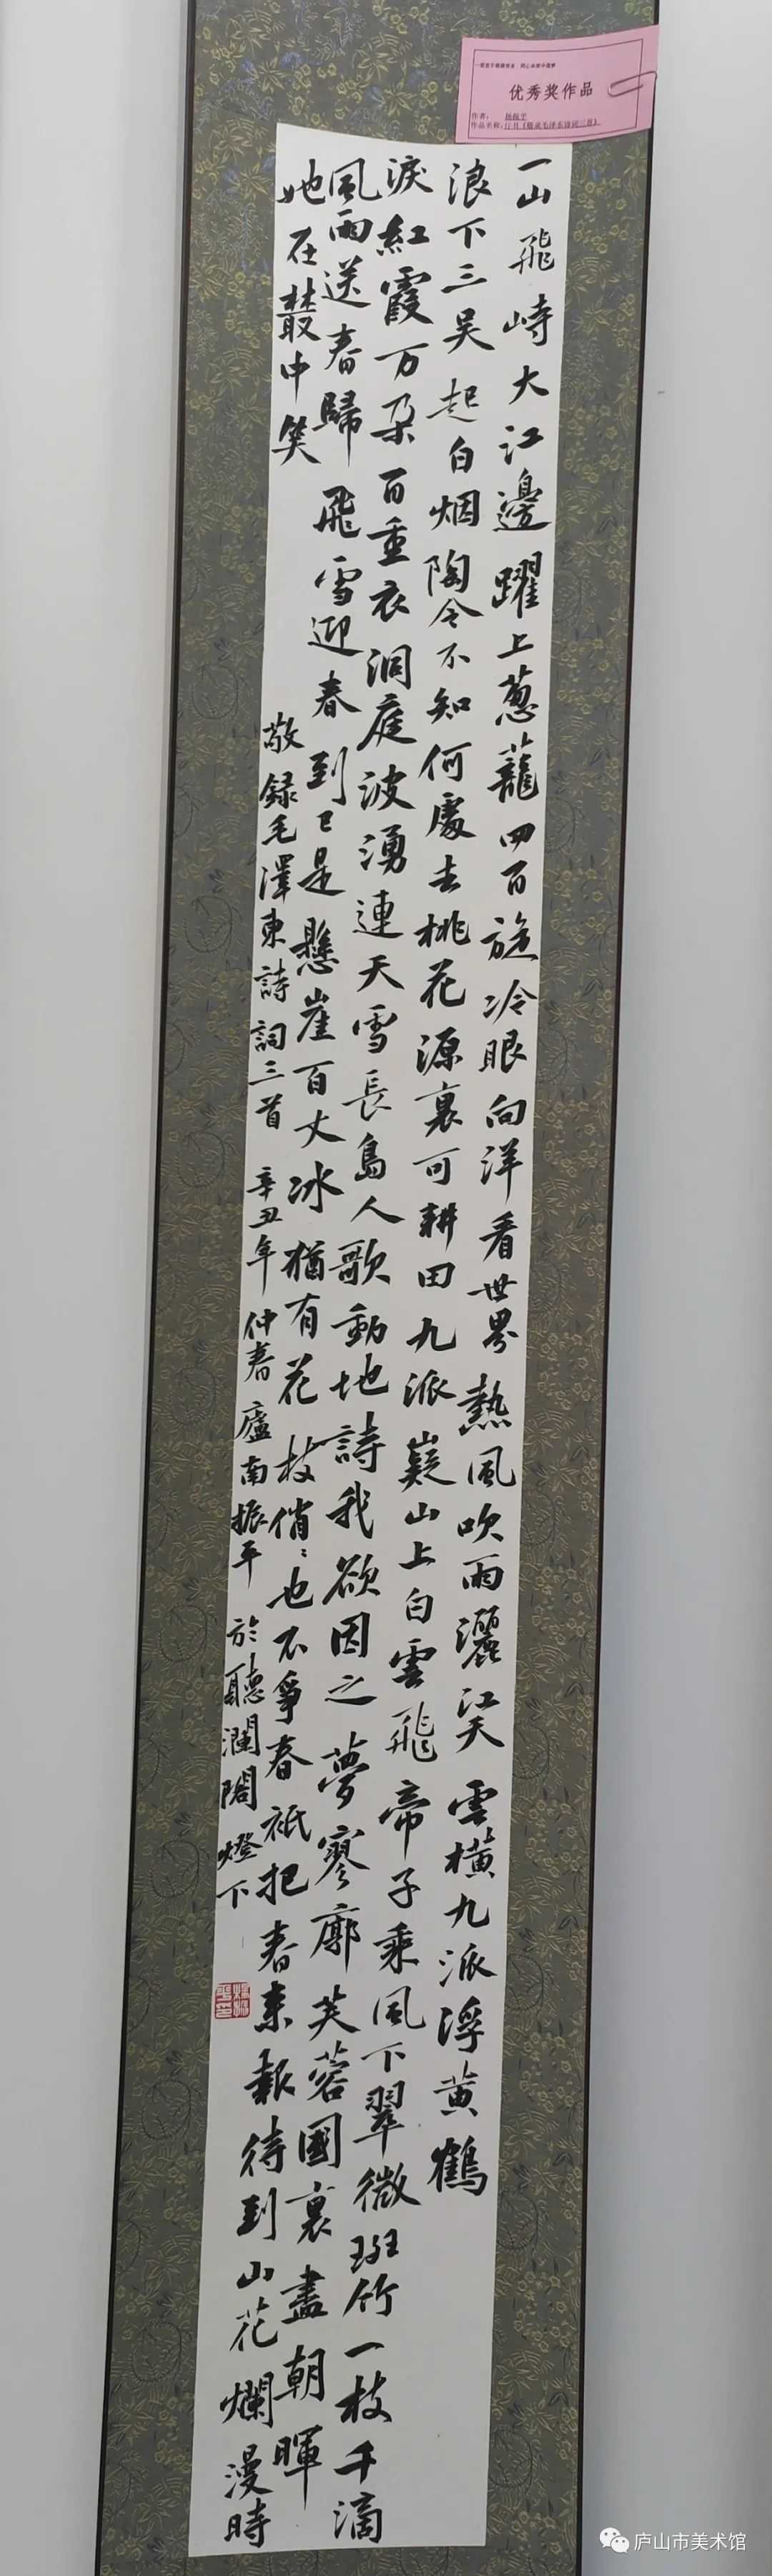 优秀奖作品
作者： 杨振平
作品名称：行书《敬录毛泽东诗词三首》
一山飛峙大江邊躍上蔥蘢四百旋冷眼向洋看世界熱風吹雨灑江天雲橫九派浮黃鶴
浪下三吳起白烟陶令不知何處去桃花源裏可耕田九派嶷山上白雲飛帝子乘風下翠微斑竹一枝千滴
淚紅霞万朵百重衣洞庭波湧連天雪長島人歌動地詩我欲因之夢寥廓芙蓉國裏盡朝暉
風雨送春歸飛雪迎春到已是懸崖百丈冰猶有花枝俏〻也不爭春祇把春來報待到山花爛漫時
她在叢中笑
敬録毛澤東詩詞三首 辛丑年仲春廬南振平於聽瀾閣燈下
庐山市美术馆